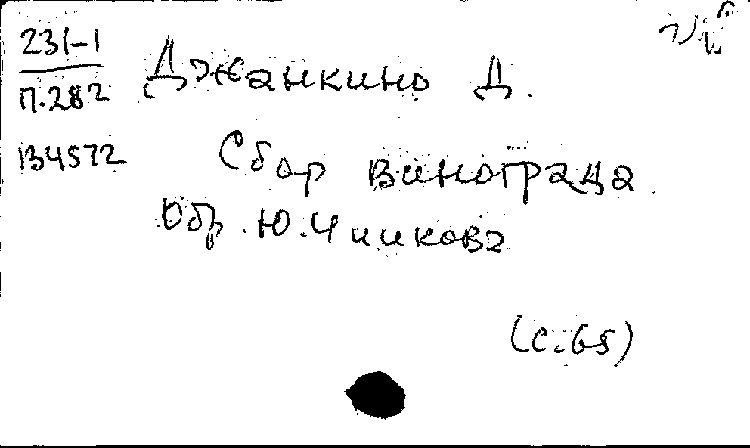 231-1
П.282
Джанкино Д.
В4572
Сбор винограда.
Обр. Ю. Чичкова
(с.65)